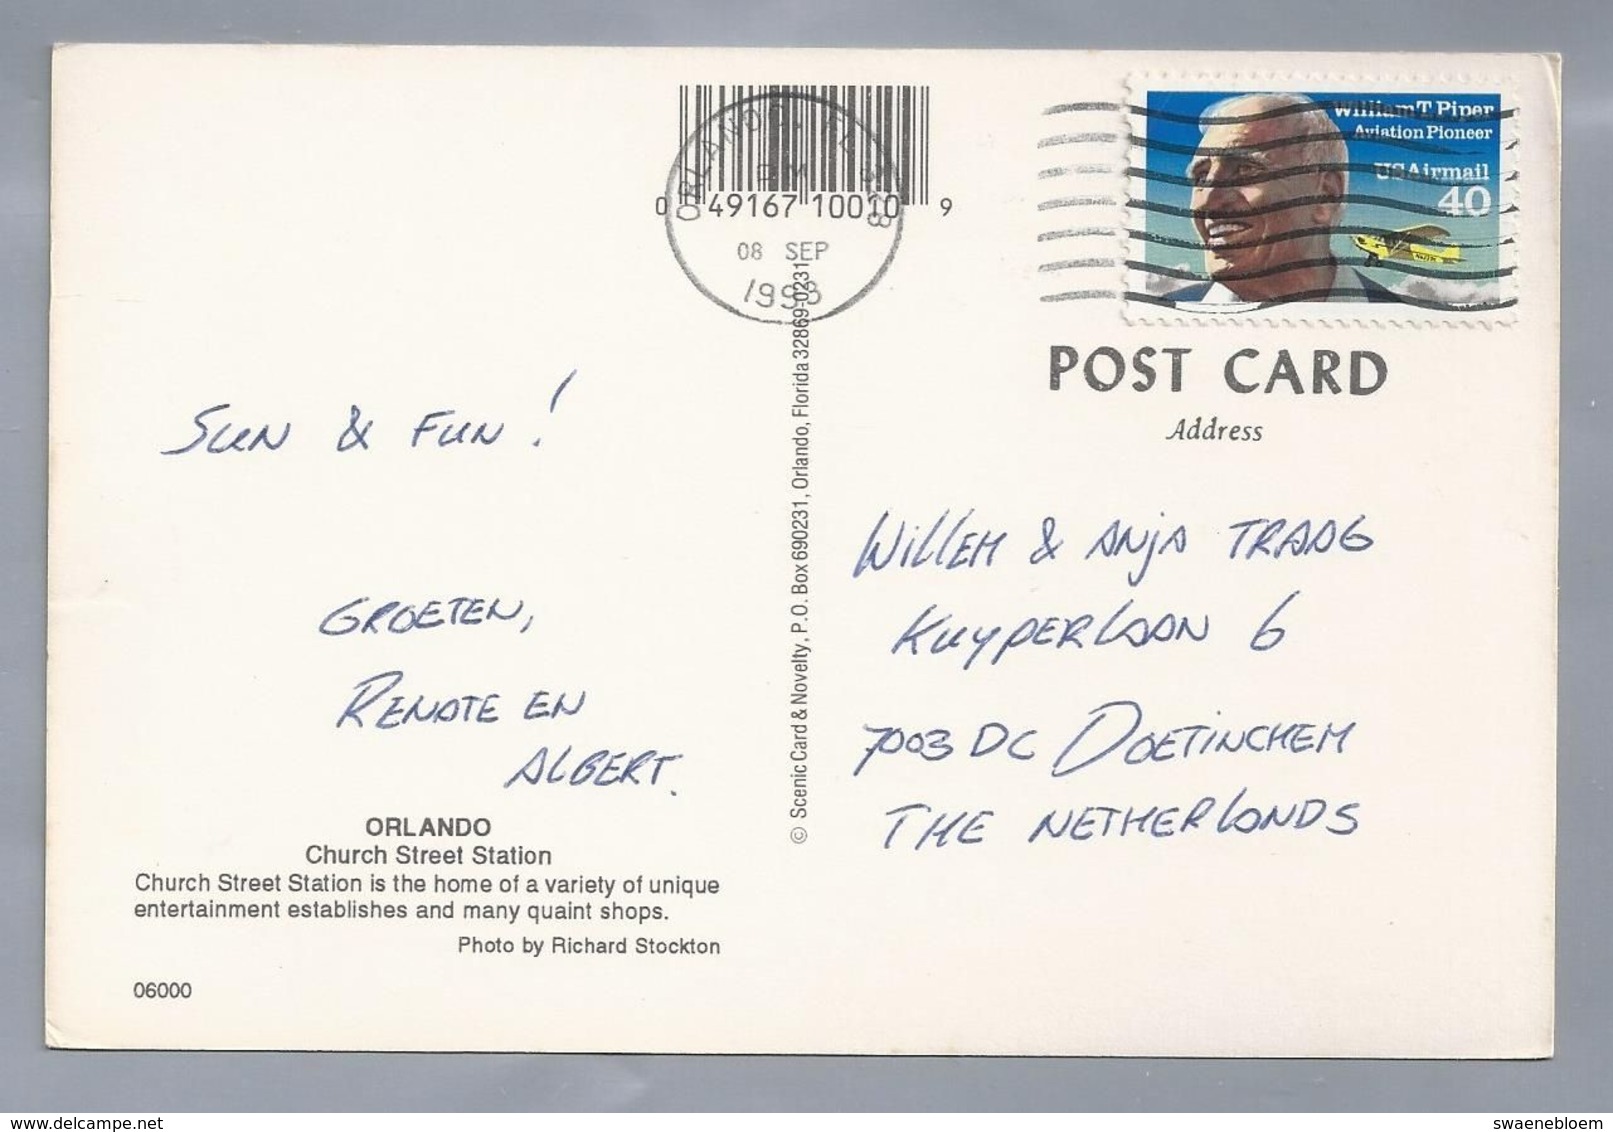 0 49167 10010 9
ORLANDO, FL 328
PM
08 SEP
1993
William T. Piper
Aviation Pioneer
USAirmail
40
POST CARD
Address
SUN & FUN!
GROETEN,
RENATE EN
ALBERT.
WILLEM & ANJA TRAAG
KUYPERLAAN 6
7003 DC DOETINCHEM
THE NETHERLANDS
© Scenic Card & Novelty, P.O. Box 690231, Orlando, Florida 32869-0231
ORLANDO
Church Street Station
Church Street Station is the home of a variety of unique
entertainment establishes and many quaint shops.
Photo by Richard Stockton
06000
delcampe.net
swaenebloem